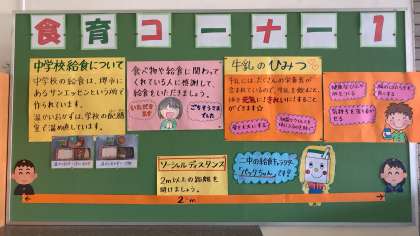 食育コーナー1
中学校給食について
中学校の給食は、堺市に
あるサンエッセンという所で
作られています。
温かいおかずは、学校の配膳
室で温め直しています。
食べ物や給食に関わって
くれている人に感謝して
給食をいただきましょう。
いただき
ます
ごちそうさま
でした
牛乳のひみつ
牛乳には、たくさんの栄養素が
含まれているので、牛乳を飲むと、
体を元気に！きれいに！することが
できます☆
骨を丈夫にする
ソーシャルディスタンス
2m以上の距離を
開けましょう。
二中の給食キャラクター
「パックちゃん」です？
2m